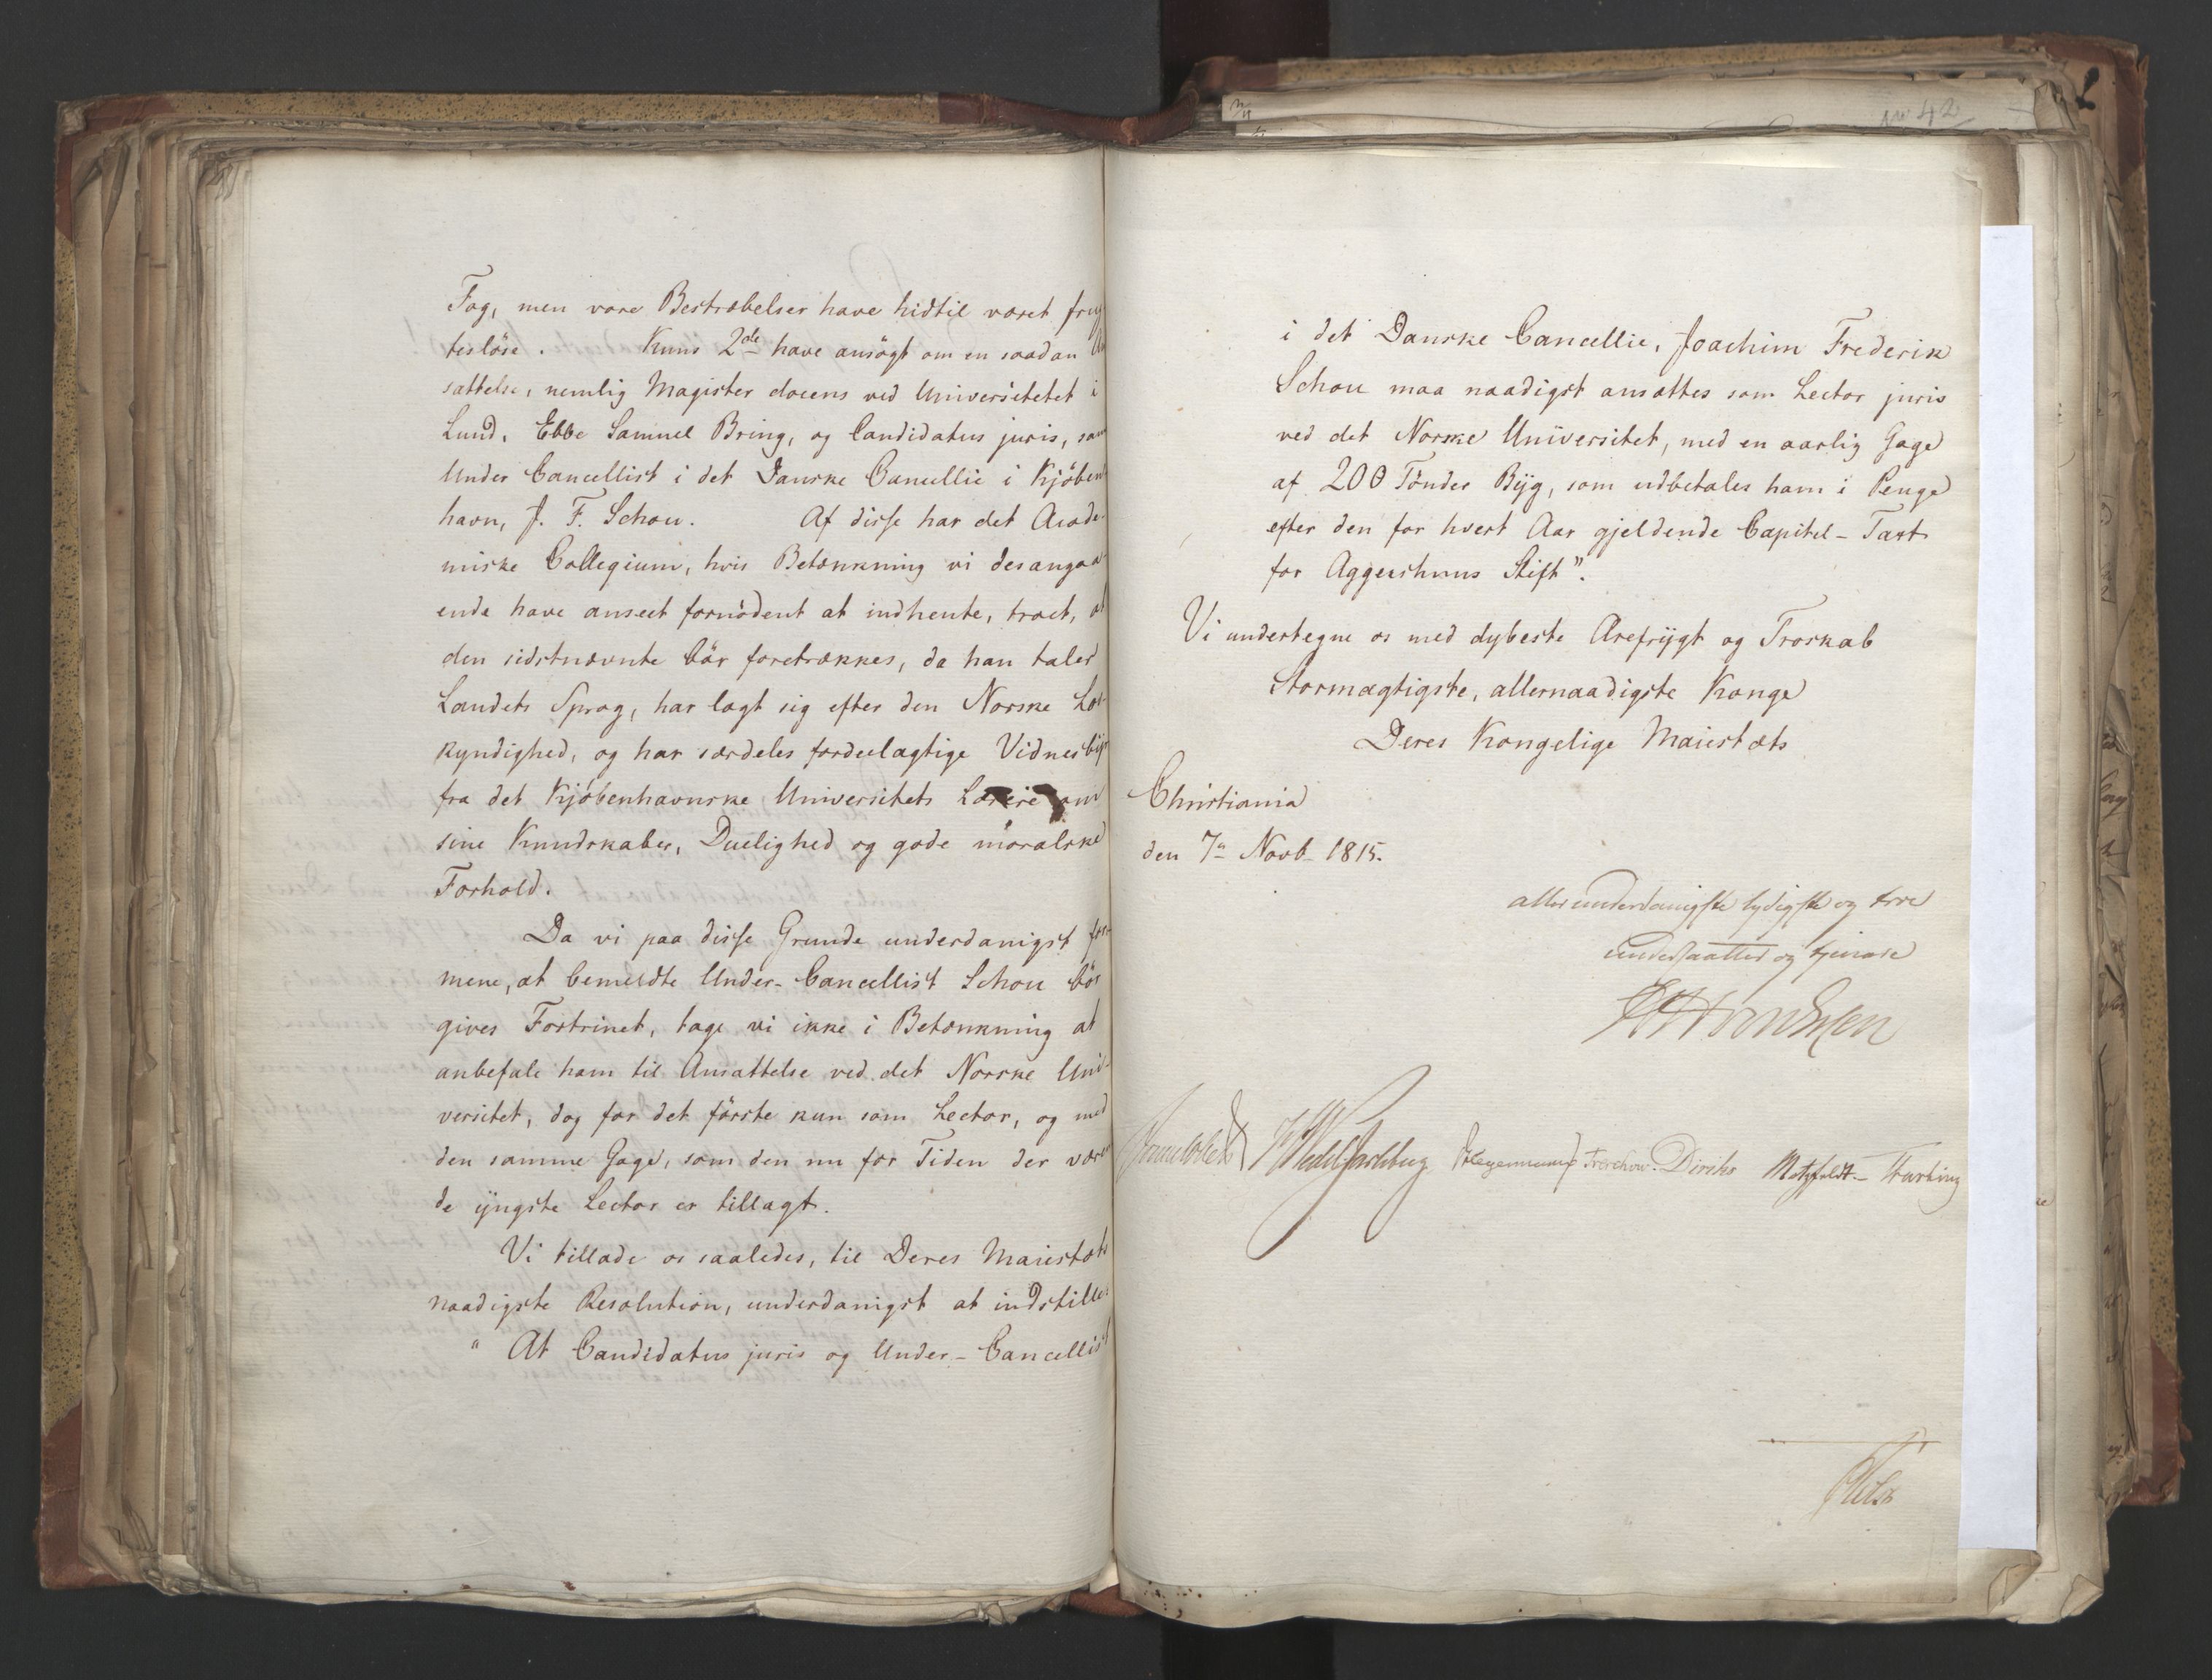 Fag, men vore Bestræbelser have hidtil været frug
tesløse. Kuns 2de have ansögt om en saadan An
sættelse, nemlig Magister docens ved Universitetet i
Lund, Ebbe Samuel Bring, og Candidatus juris, samt
Under Cancellist i det Danske Cancellie i Kjöben
havn, J. F. Schou. Af disse har det Acade-
miske Collegium, hvis Betænkning vi desangaa-
ende have anseet fornödent at indhente, troet, at
den sidstnævnte bör foretrækkes, da han taler
Landets Sprog, har lagt sig efter den Norske Lov-
kyndighed, og har særdeles fordeelagtige Vidnesbyr
fra det Kjöbenhavnske Universitets Lærere om
sine Kundskaber, Duelighed og gode moralske
Forhold.
Da vi paa disse Grunde underdanigst for-
mene, at bemeldte Under-Cancellist Schou bör
gives Fortrinet, tage vi ikke i Betænkning at
anbefale ham til Ansættelse ved det Norske Uni-
versitet, dog for det förste kun som Lector, og med
den samme Gage, som den nu for Tiden der væren
de yngste Lector er tillagt.
Vi tillade os saaledes, til Deres Maiestæts
naadigste Resolution, underdanigst at indstille:
" At Candidatus juris og Under-Cancellist
no 42
i det Danske Cancellie, Joachim Frederik
Schou maa naadigst ansættes som Lector juris
ved det Norske Universitet, med en aarlig Gage
af 200 Tönder Byg, som udbetales ham i Penge
efter den for hvert Aar gjeldende Capitel-Taxt
for Aggershuus Stift".
Vi undertegne os med dybeste Ærefrygt og Troskab
Stormægtigste, allernaadigste Konge
Deres Kongelige Maiestæts
Christiania
den 7n Novb. 1815.
allerunderdanigste lydigste og troe
undersaatter og tjenere
Sommerhielm Wedel Jarlsberg Hegermann Treschow. Diriks Motzfeldt.